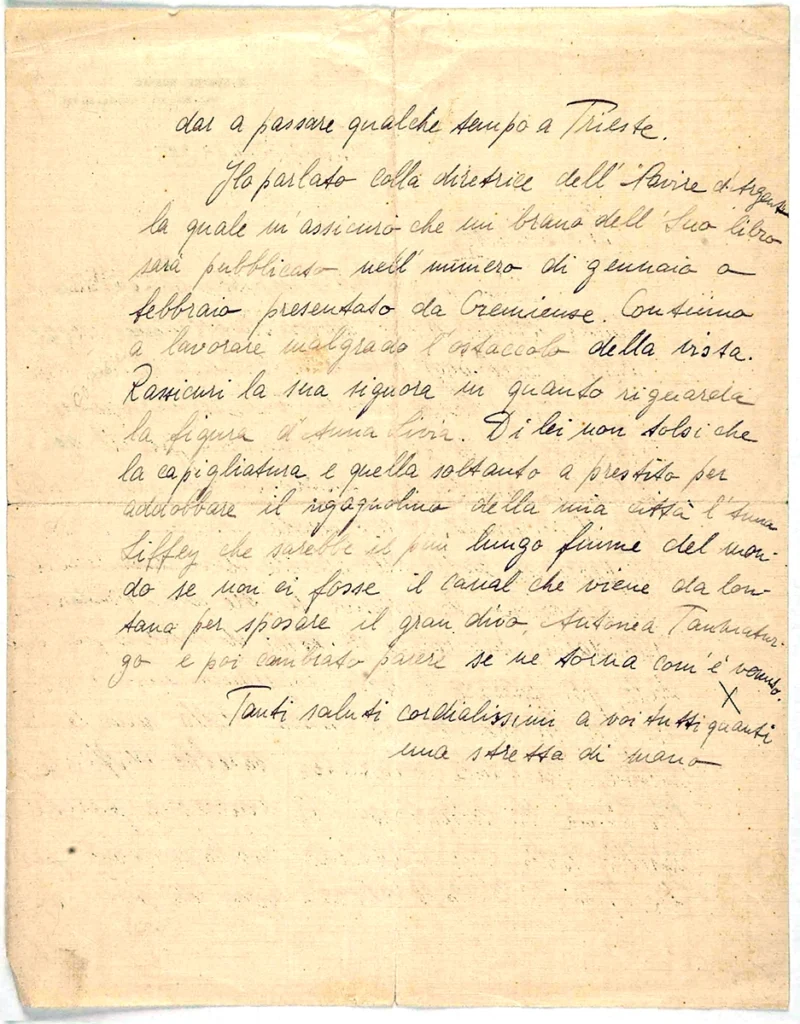 dar a passare qualche tempo a Trieste.
Ho parlato colla diretrice dell' Navire d'Argent
la quale m'assicurò che un brano dell' Suo libro
sarà pubblicato nell'numero di gennaio o
febbraio presentato da Cremieuse. Continuo
a lavorare malgrado l'ostaccolo della vista.
Rassicuri la sua signora in quanto riguarda
la figura d'Anna Livia. Di lei non tolsi che
la capigliatura e quella soltanto a prestito per
addobbare il rigagnolino della mia città l'Anna
Liffey che sarebbe il più lungo fiume del mon-
do se non ci fosse il canal che viene da lon-
tano per sposare il gran divo, Antonio Taumatur-
go e poi cambiato parere se ne torna com'è venuto.
X
Tanti saluti cordialissimi a voi tutti quanti
una stretta di mano